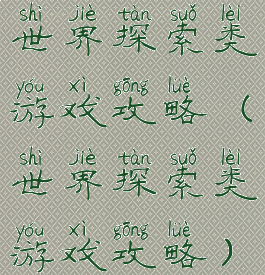 shì jiè tàn suǒ lèi
世界探索类
yóu xì gōng lüè
游戏攻略（
shì jiè tàn suǒ lèi
世界探索类
yóu xì gōng lüè
游戏攻略）